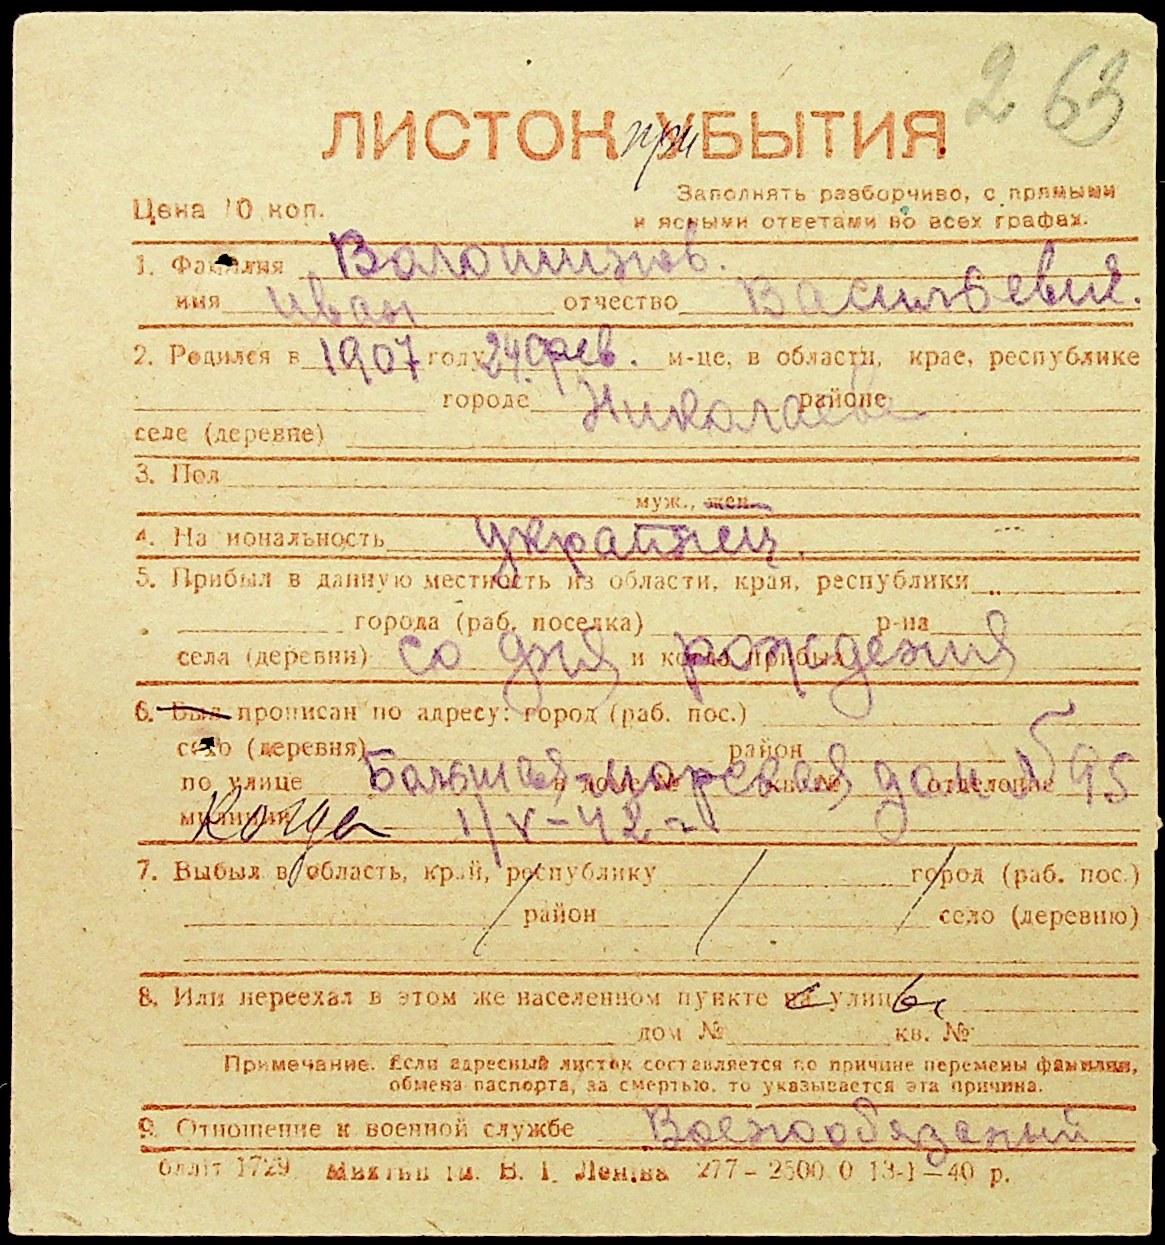 263
ЛИСТОК при УБЫТИЯ
Цена 10 коп.
Заполнять разборчиво, с прямыми
и ясными ответами во всех графах.
1. Фамилия Волошинов.
имя Иван отчество Васильевич.
2. Родился в 1907 году 24 фев. м-це, в области, крае, республике
городе Николаеве районе
селе (деревне)
3. Пол
муж., жен.
4. Национальность украинец.
5. Прибыл в данную местность из области, края, республики
города (раб. поселка) р-на
села (деревни) со дня рождения и когда прибыл
6. Был прописан по адресу: город (раб. пос.)
село (деревня) район
по улице Большая-морская дом № 95 в доме № кв. № отделение
милиции Когда 1/V-42 г.
7. Выбыл в область, край, республику город (раб. пос.)
район село (деревню)
8. Или переехал в этом же населенном пункте на с улицы
дом № кв. №
Примечание. Если адресный листок составляется по причине перемены фамилии,
обмена паспорта, за смертью, то указывается эта причина.
9. Отношение к военной службе Военнообязаный
1729 ім. В. І. Леніна 277—2500.0 13-I—40 р.